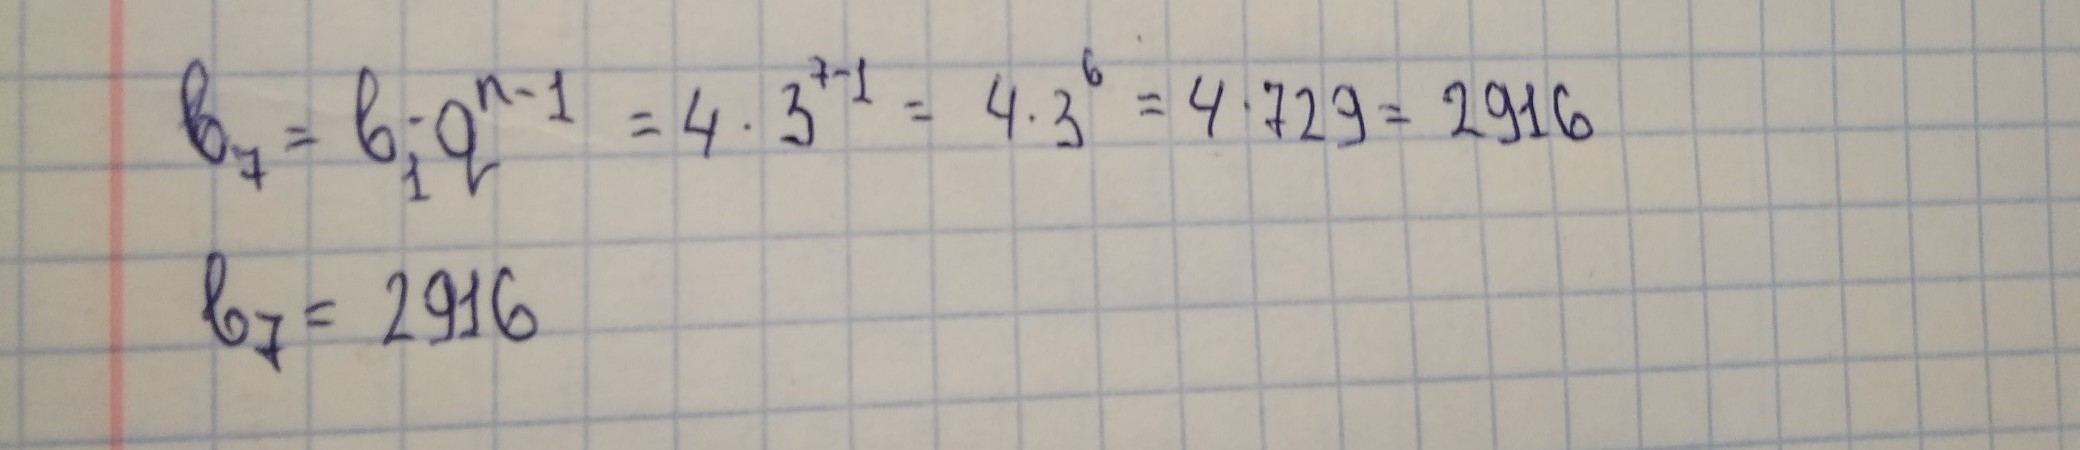 b₇ = b₁·qⁿ⁻¹ = 4·3⁷⁻¹ = 4·3⁶ = 4·729 = 2916
b₇ = 2916